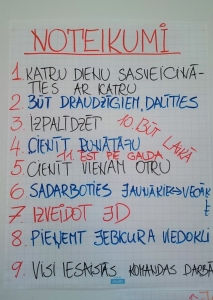 NOTEIKUMI
1. KATRU DIENU SASVEICINĀ-
TIES AR KATRU
2. BŪT DRAUDZĪGIEM, DALĪTIES
3. IZPALĪDZĒT
10. BŪT LAIKĀ
4. CIENĪT RUNĀTĀJU
11. EST PIE GALDA
5. CIENĪT VIENAM OTRU
6. SADARBOTIES JAUNĀKIE↔VECĀK
7. IZVEIDOT JD
8. PIEŅEMT JEBKURA VIEDOKLI
9. VISI IESAISTĀS KOMANDAS DARBĀ